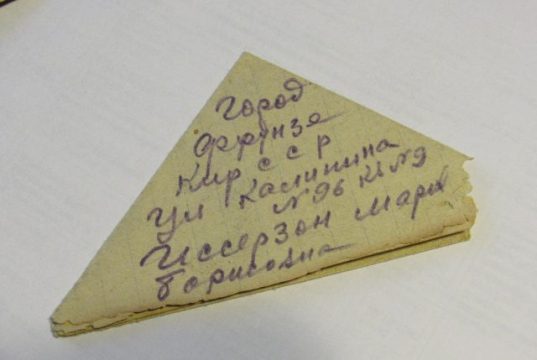 город
Фрунзе
Кир С С Р
ул Калинина
№96 кв №9
Иссерзон Мария
Борисовна